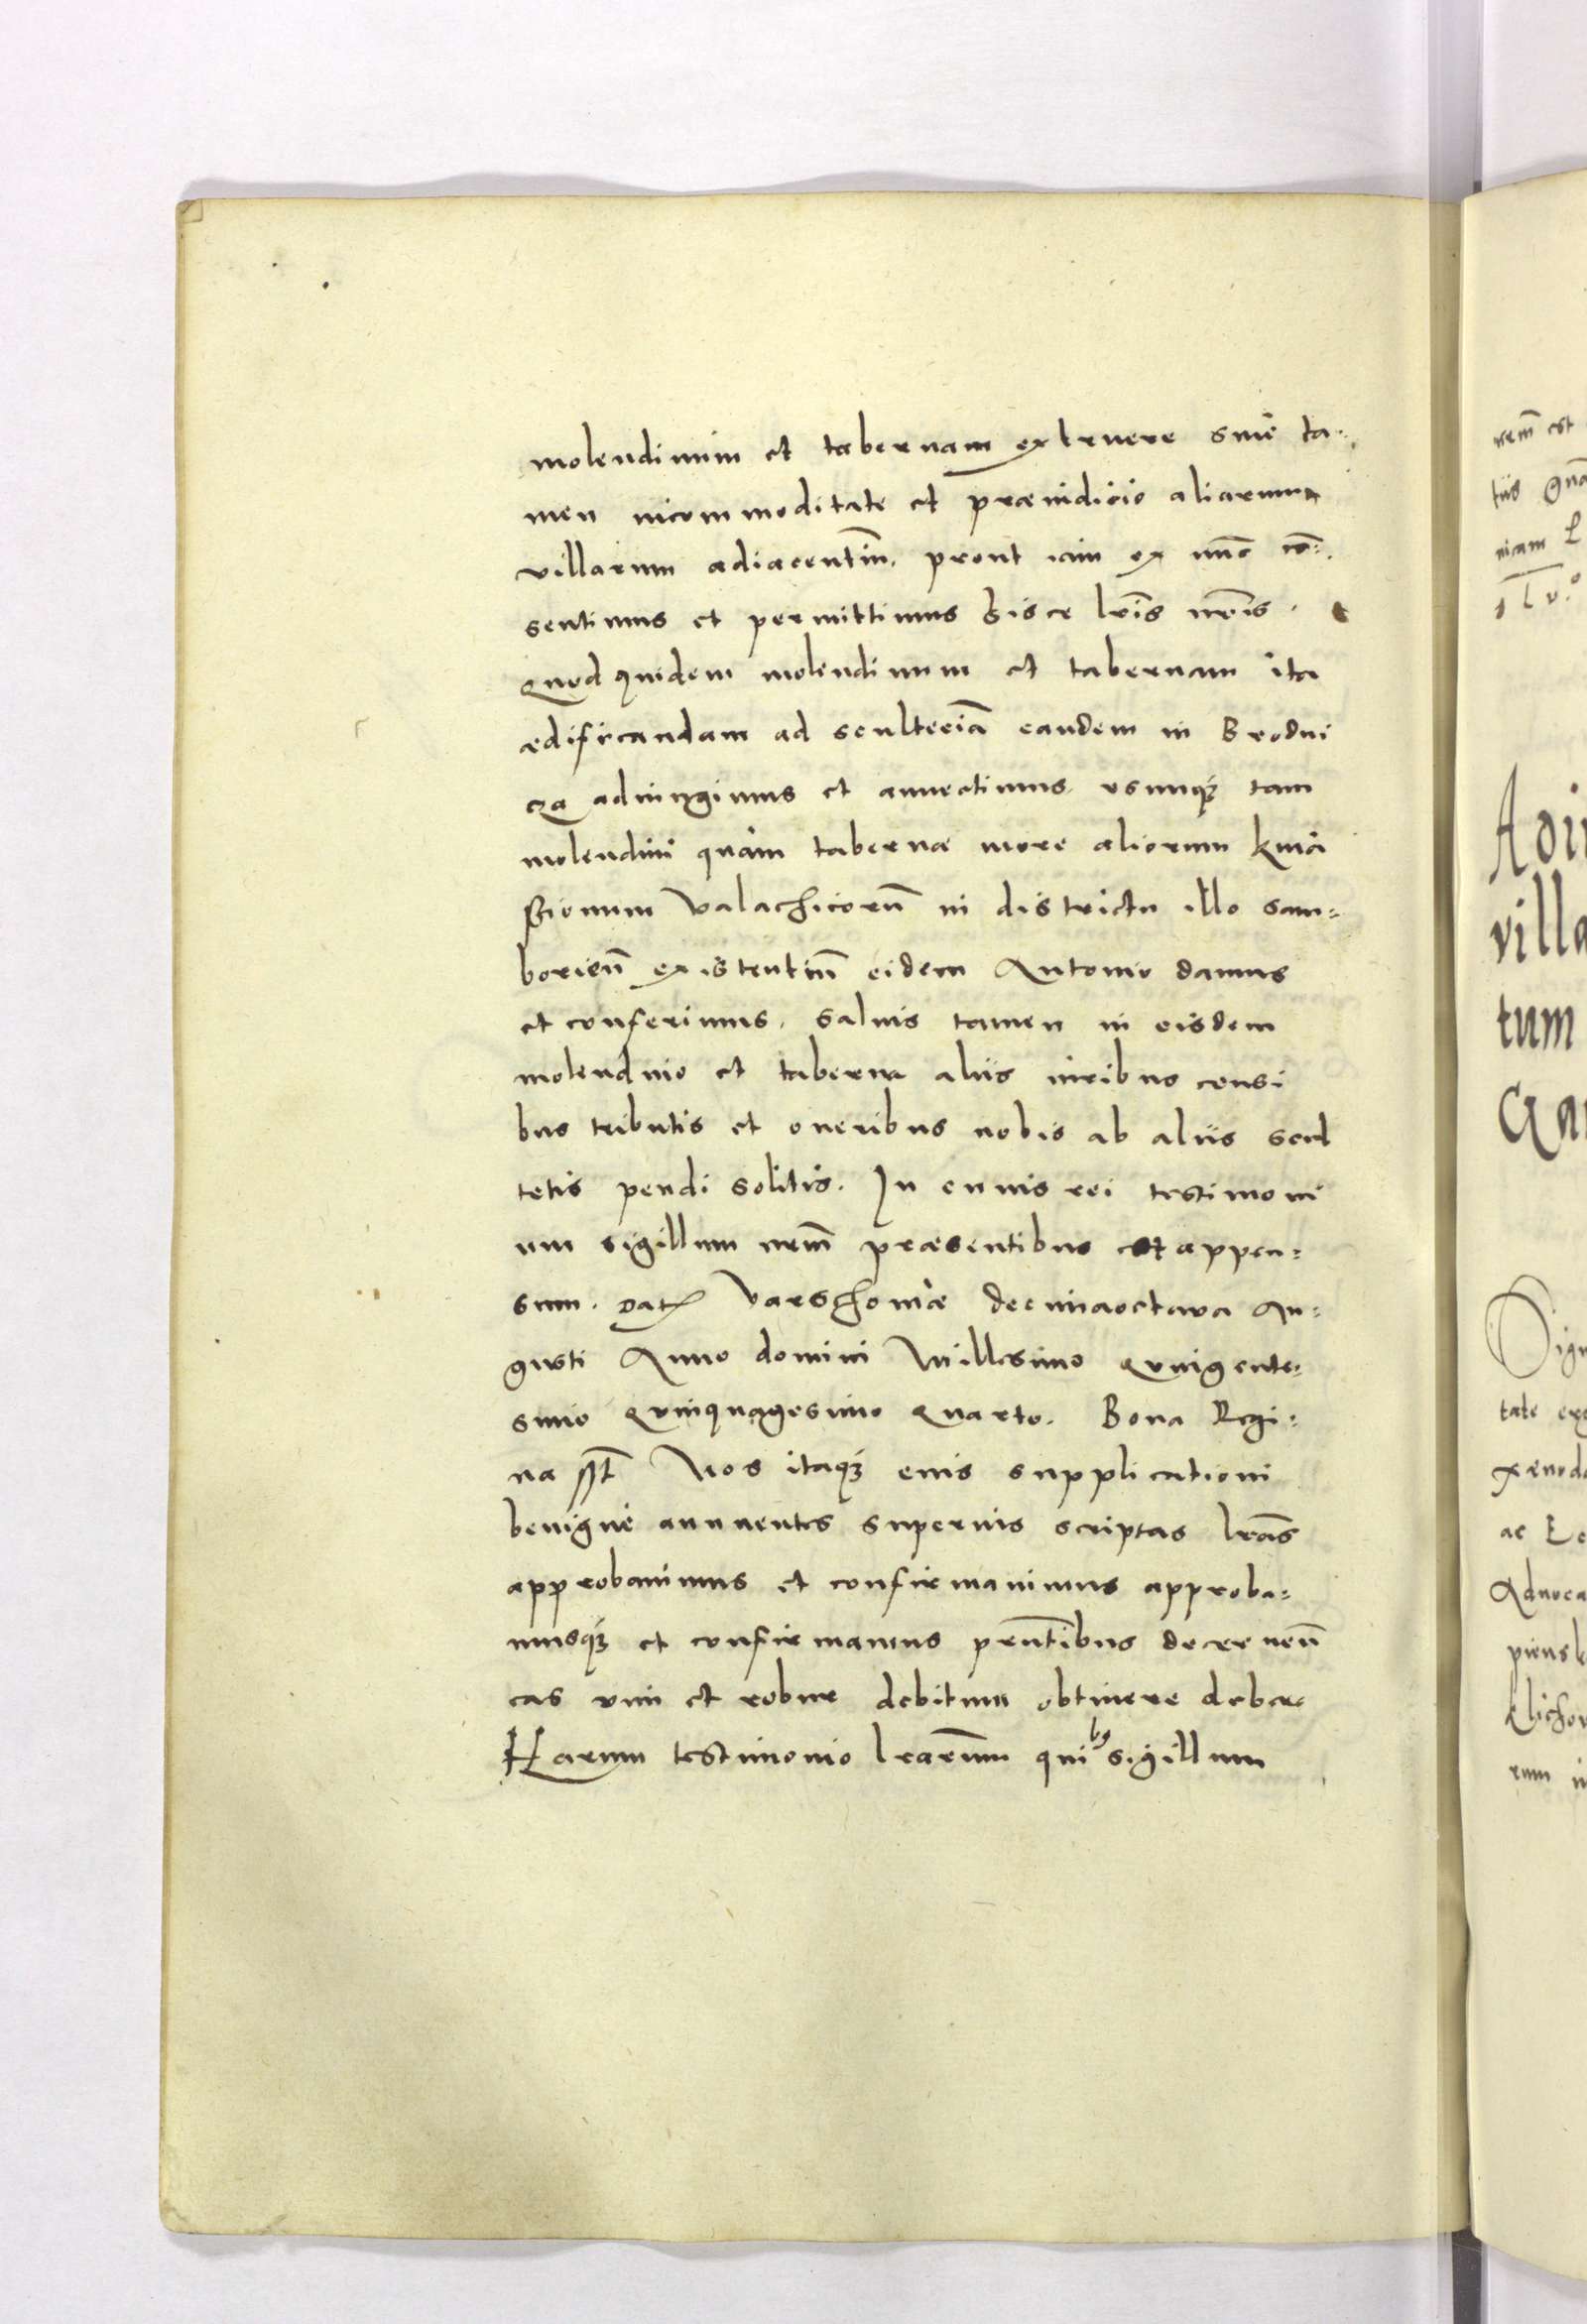 molendinum et tabernam extruere sine ta-
men incommoditate et præiudicio aliarum
villarum adiacentiū. prout iam ex nūc cō-
sentimus et permittimus hisce lr̄is nr̄is.
Quod quidem molendinum et tabernam ita
ædificandam ad scultetiā eandem in Brodni
cza adiungimus et annectimus. usumq; tam
molendini quàm tabernæ more aliorum kniá
sionum Valachicorū in districtu illo Sam-
borien̄ existentiū eidem Antonio damus
et conferimus. Saluis tamen in eisdem
molendino et taberna aliis iuribus censi
bus tributis et oneribus nobis ab aliis scul
tetis pendi solitis. In cuius rei testimoni
um sigillum nrm̄ præsentibus est appen-
sum. Dat Varschouiæ decimaoctava Au-
gusti Anno domini Millesimo Quingente-
simo Quinquagesimo Quarto. Bona Regi-
na sst̄ Nos itaq; eius supplicationi
benigné annuentes superius scriptas lrās
approbauimus et confirmauimus approba-
musq; et confirmamus prn̄tibus decernen̄
eas vim et robur debitum obtinere debere
Harum testimonio lrārum quibus sigillum
nrm̄ est
tiis
niam
villa
tum
tate
ac
Aduoca
rum